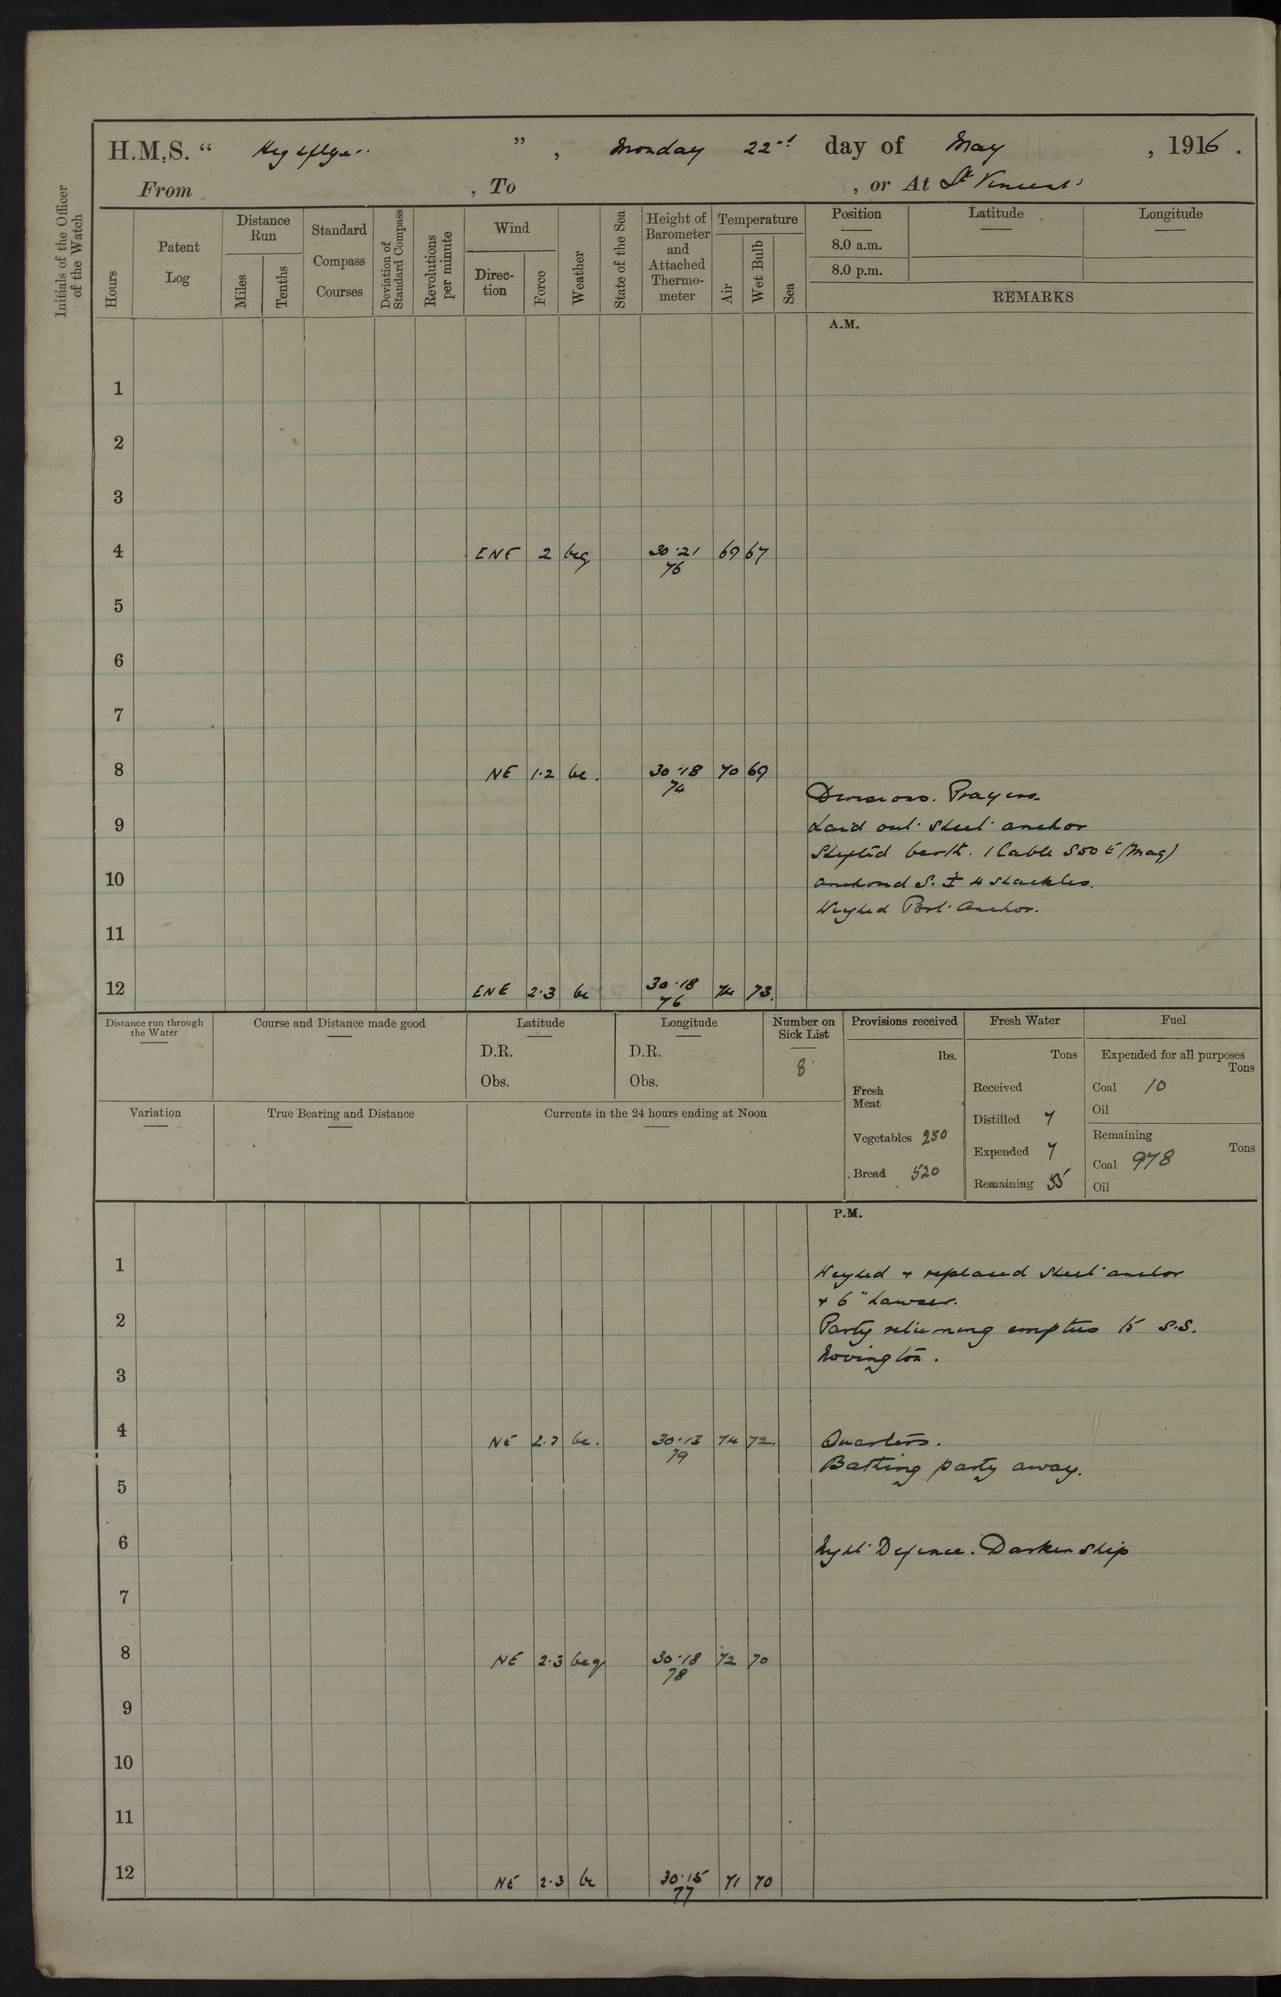 H.M.S. “ Highflyer ” , Monday 22nd day of May , 1916 .
From , To , or At St Vincent
Initials of the Officer of the Watch
Hours
Patent Log
Distance Run
Miles
Tenths
Standard Compass Courses
Deviation of Standard Compass
Revolutions per minute
Wind
Direc-tion
Force
Weather
State of the Sea
Height of Barometer and Attached Thermo-meter
Temperature
Air
Wet Bulb
Sea
Position Latitude Longitude
8.0 a.m.
8.0 p.m.
REMARKS
A.M.
1
2
3
4 ENE 2 bcq 30.21 69 67
76
5
6
7
8 NE 1.2 bc. 30.18 70 69
74
Divisions. Prayers.
9 Laid out sheet anchor
Shifted berth. 1 Cable S50E (Mag)
10 Anchored S. 4 shackles.
Weighed Port Anchor.
11
12 ENE 2.3 bc 30.18 74 73.
76
Distance run through the Water
Course and Distance made good
Latitude
D.R.
Obs.
Longitude
D.R.
Obs.
Number on Sick List
8
Provisions received
lbs.
Fresh Meat
Vegetables 250
Bread 520
Fresh Water
Tons
Received
Distilled 7
Expended 7
Remaining 55
Fuel
Expended for all purposes
Tons
Coal 10
Oil
Remaining
Tons
Coal 978
Oil
Variation
True Bearing and Distance
Currents in the 24 hours ending at Noon
P.M.
1 Weighed + replaced sheet anchor
+ 6" hawser.
2 Party returning empties to S.S.
Novington.
3
4 NE 2.3 bc. 30.13 74 72. Quarters.
79
Bathing party away.
5
6 Night Defence. Darken ship
7
8 NE 2.3 bcq 30.18 72 70
78
9
10
11
12 NE 2.3 bc 30.15 71 70
77